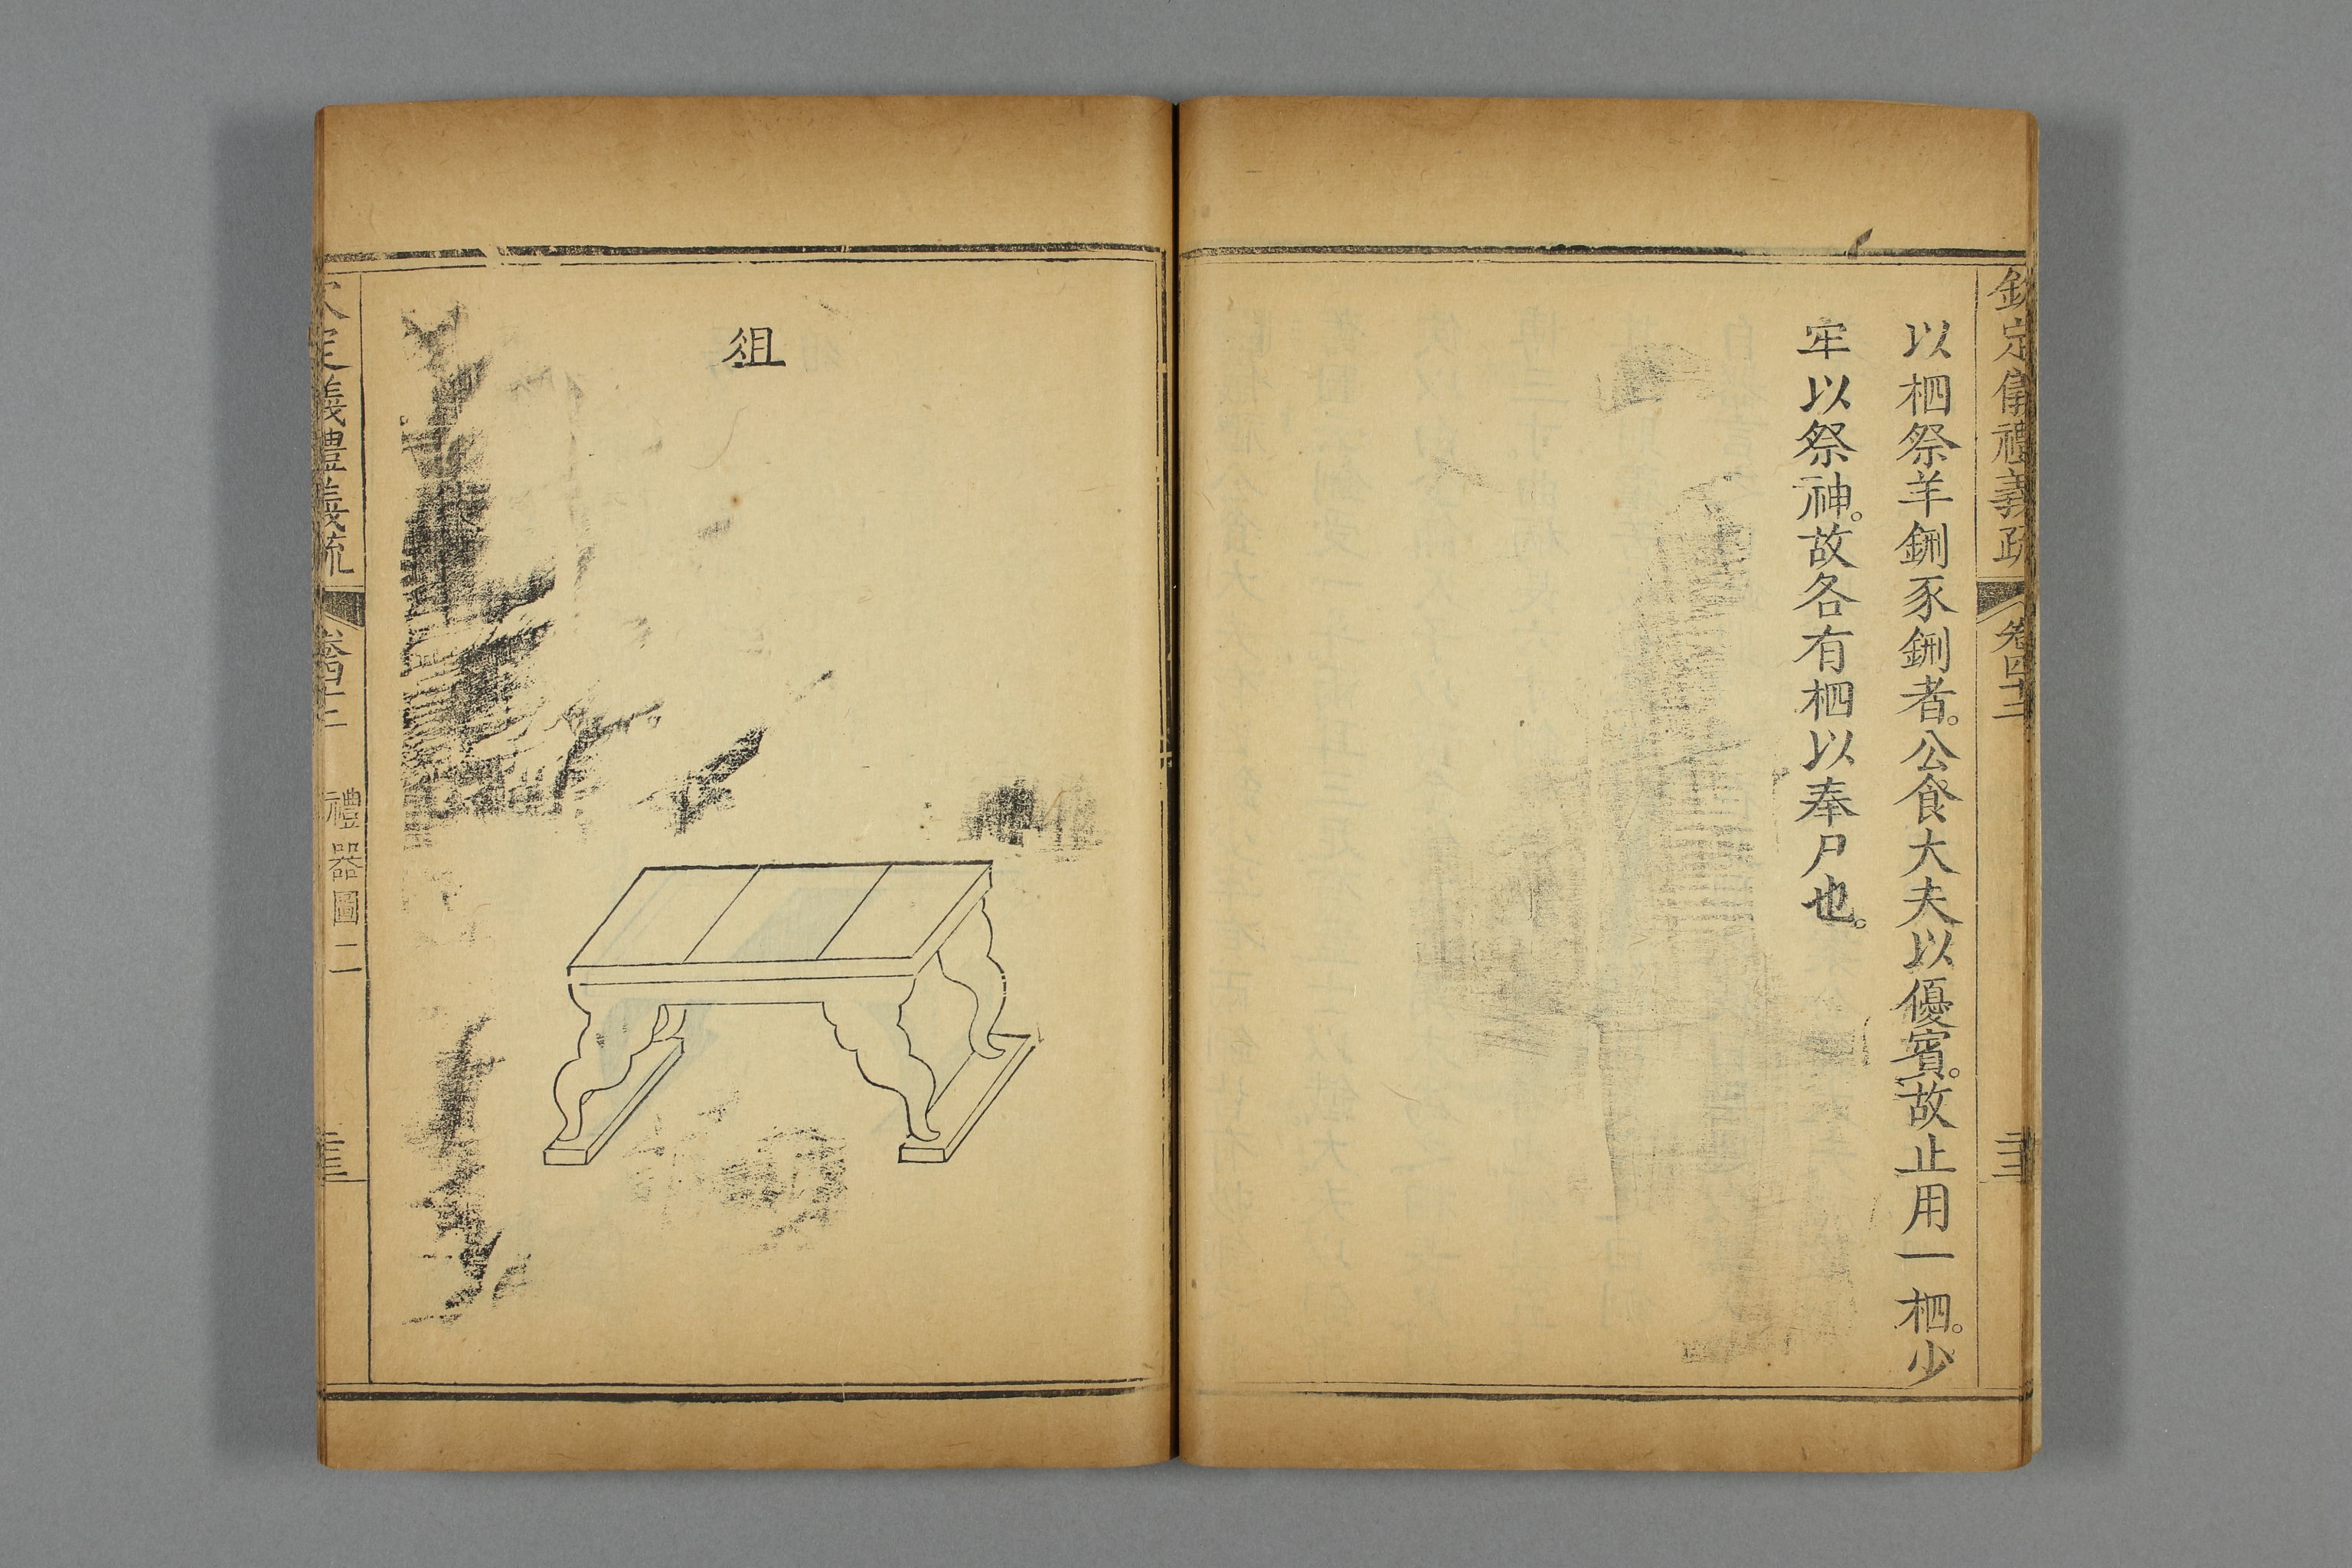 欽定儀禮義疏
卷四十二
以柶祭羊鉶豕鉶者。公食大夫以優賓。故止用一柶。少
牢以祭神。故各有柶以奉尸也。
俎
定義禮義疏
卷四十二
禮器圖二